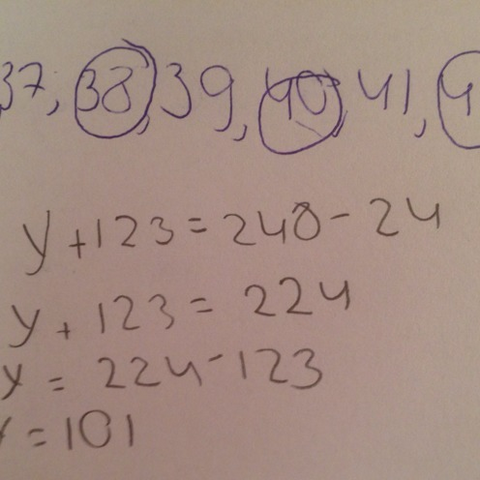 37, 38, 39, 40, 41, 4
y + 123 = 248 - 24
y + 123 = 224
y = 224 - 123
y = 101